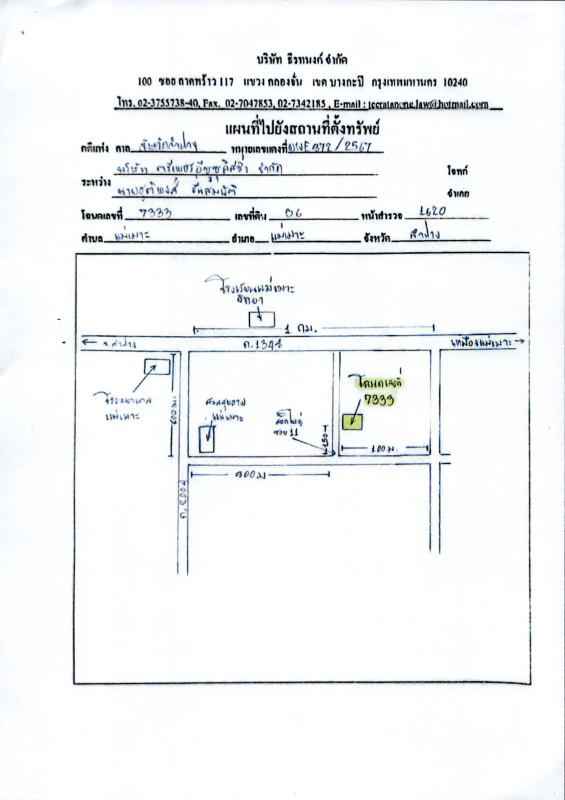 บริษัท ธีรทนงค์ จำกัด
100 ซอย ลาดพร้าว 117 แขวง คลองจั่น เขต บางกะปิ กรุงเทพมหานคร 10240
โทร. 02-3755738-40, Fax. 02-7047853, 02-7342185 , E-mail : teeratanong.law@hotmail.com
แผนที่ไปยังสถานที่ตั้งทรัพย์
คดีแพ่ง ศาล จังหวัดลำปาง หมายเลขแดงที่ ผบE372/2567
บริษัท ตรีเพชรอีซูซุลิสซิ่ง จำกัด โจทก์
ระหว่าง
จำเลย
โฉนดเลขที่ 7333 เลขที่ดิน 06 หน้าสำรวจ 1620
ตำบล แม่เมาะ อำเภอ แม่เมาะ จังหวัด ลำปาง
โรงเรียนแม่เมาะ
วิทยา
1 กม.
← จ.ลำปาง
ถ.1348
เหมืองแม่เมาะ →
โรงพยาบาล
แม่เมาะ
600 ม.
แม่เมาะ
ซอย 11
150
โฉนดเลขที่
7333
100 ม.
900 ม